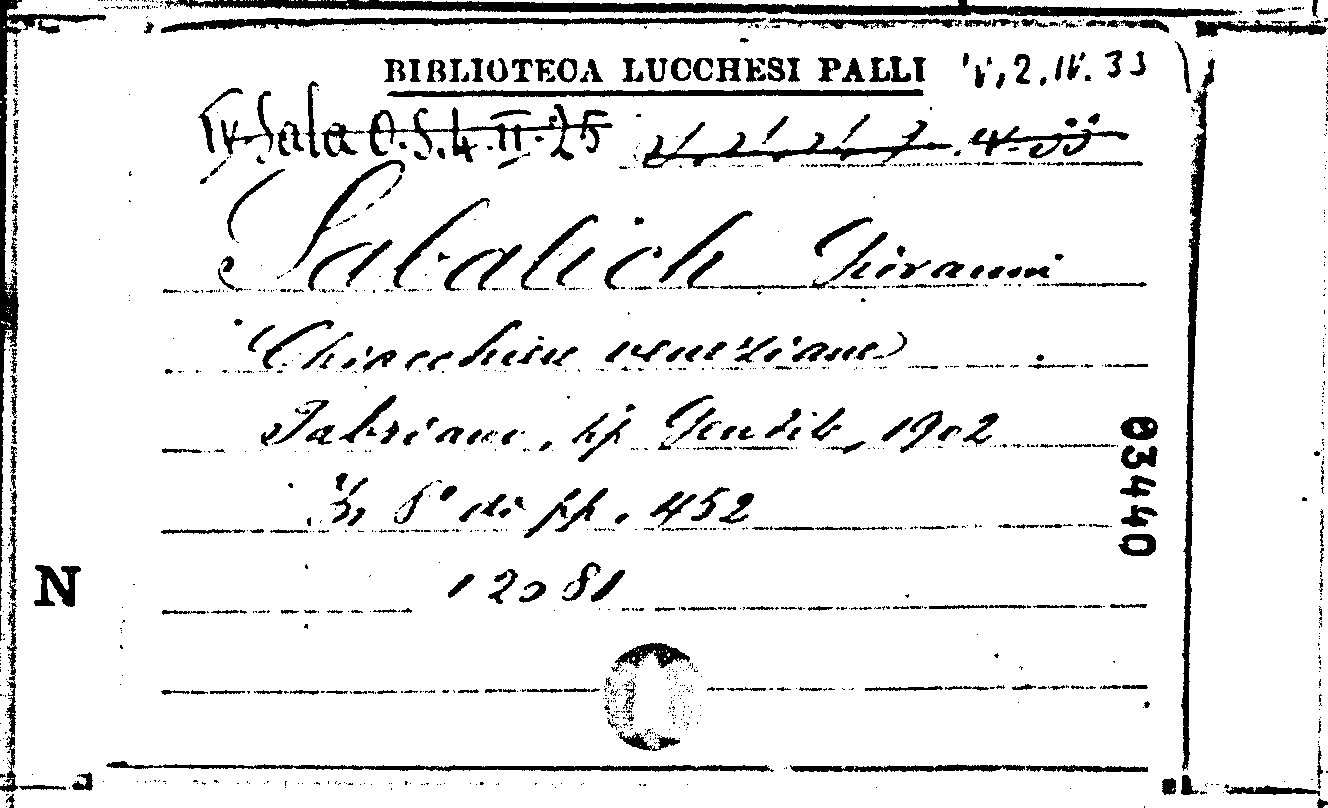 BIBLIOTECA LUCCHESI PALLI V, 2. IV. 33
IV Sala O. S. 4. II. 25
Sabalich Giovanni
Chiacchiere veneziane
Fabriano, tip Gentile, 1902
In 8° di pp. 452
12081
N
03440